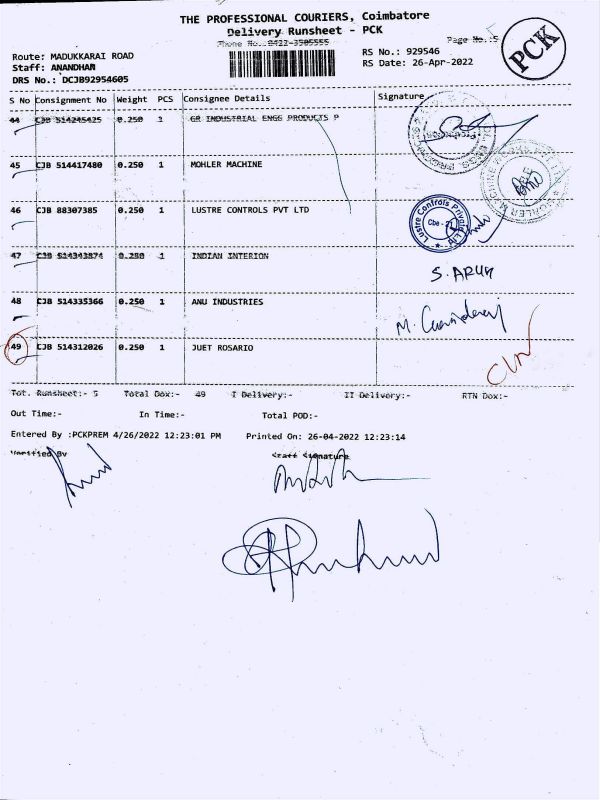 THE PROFESSIONAL COURIERS, Coimbatore
Delivery Runsheet - PCK
Phone No.:0422-3505555
Page No.:5
PCK
Route: MADUKKARAI ROAD
Staff: ANANDHAN
DRS No.: DCJB92954605
RS No.: 929546
RS Date: 26-Apr-2022
S No Consignment No Weight PCS Consignee Details Signature
44 CJB 514245425 0.250 1 GR INDUSTRIAL ENGG PRODUCTS P
45 CJB 514417480 0.250 1 MOHLER MACHINE
46 CJB 88307385 0.250 1 LUSTRE CONTROLS PVT LTD
Lustre Controls Private
47 CJB 514343874 0.250 1 INDIAN INTERION
S. ARUN
48 CJB 514335366 0.250 1 ANU INDUSTRIES
49 CJB 514312026 0.250 1 JUET ROSARIO
Tot. Runsheet:- 5 Total Dox:- 49 I Delivery:- II Delivery:- RTN Dox:-
Out Time:- In Time:- Total POD:-
Entered By :PCKPREM 4/26/2022 12:23:01 PM Printed On: 26-04-2022 12:23:14
Verified By Staff Signature